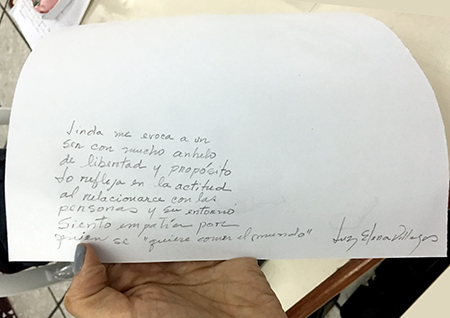 Linda me evoca a un
ser con mucho anhelo
de libertad y propósito
Lo refleja en la actitud
al relacionarce con las
personas y su entorno
Siento empatía por
quien se "quiere comer el mundo"
Luz Elena Villegas